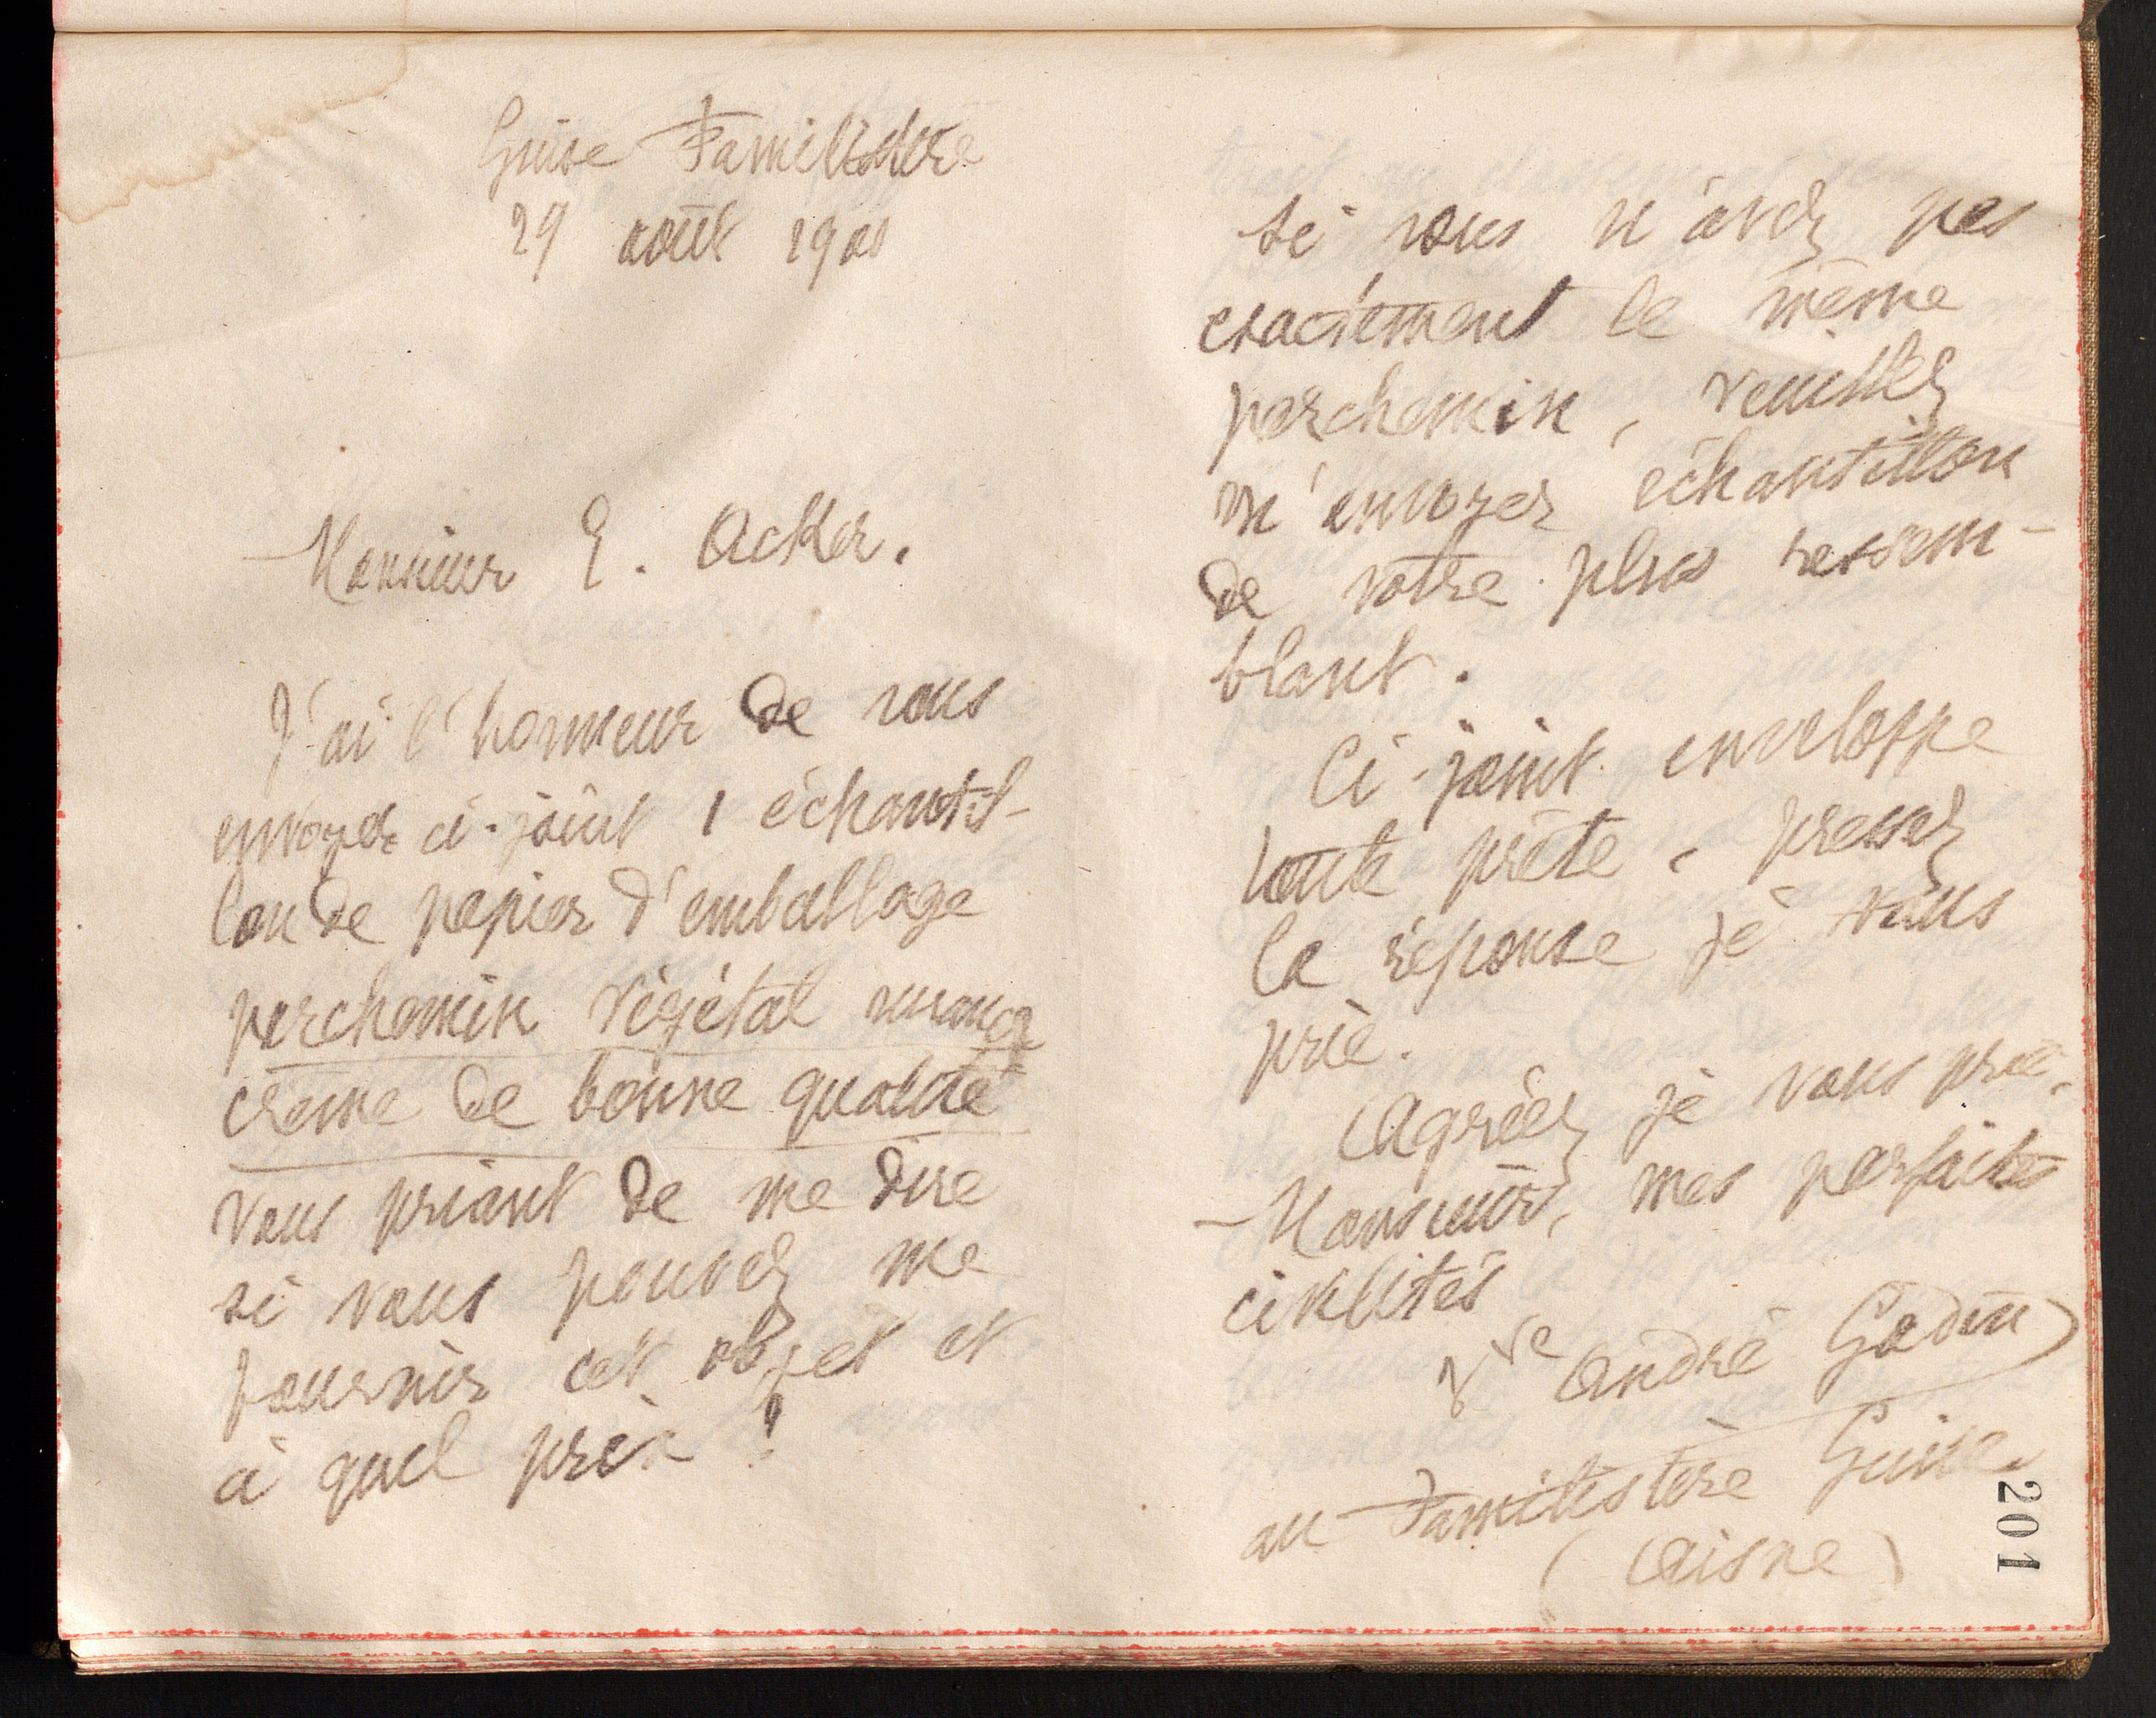 Guise Familistère
29 août 1901
Monsieur E. Acker.
J'ai l'honneur de vous
envoyer ci-joint 1 échantil-
lon de papier d'emballage
parchemin végétal nuance
crème de bonne qualité
vous priant de me dire
si vous pouvez me
fournir cet objet et
à quel prix ?
si vous n'avez pas
exactement le même
parchemin, veuillez
m'envoyer échantillon
de votre plus ressem-
blant.
Ci-joint enveloppe
toute prête, pressez
la réponse je vous
prie.
Agréez je vous prie,
Monsieur, mes parfaites
civilités
Vve André Godin
au Familistère Guise
(Aisne)
201